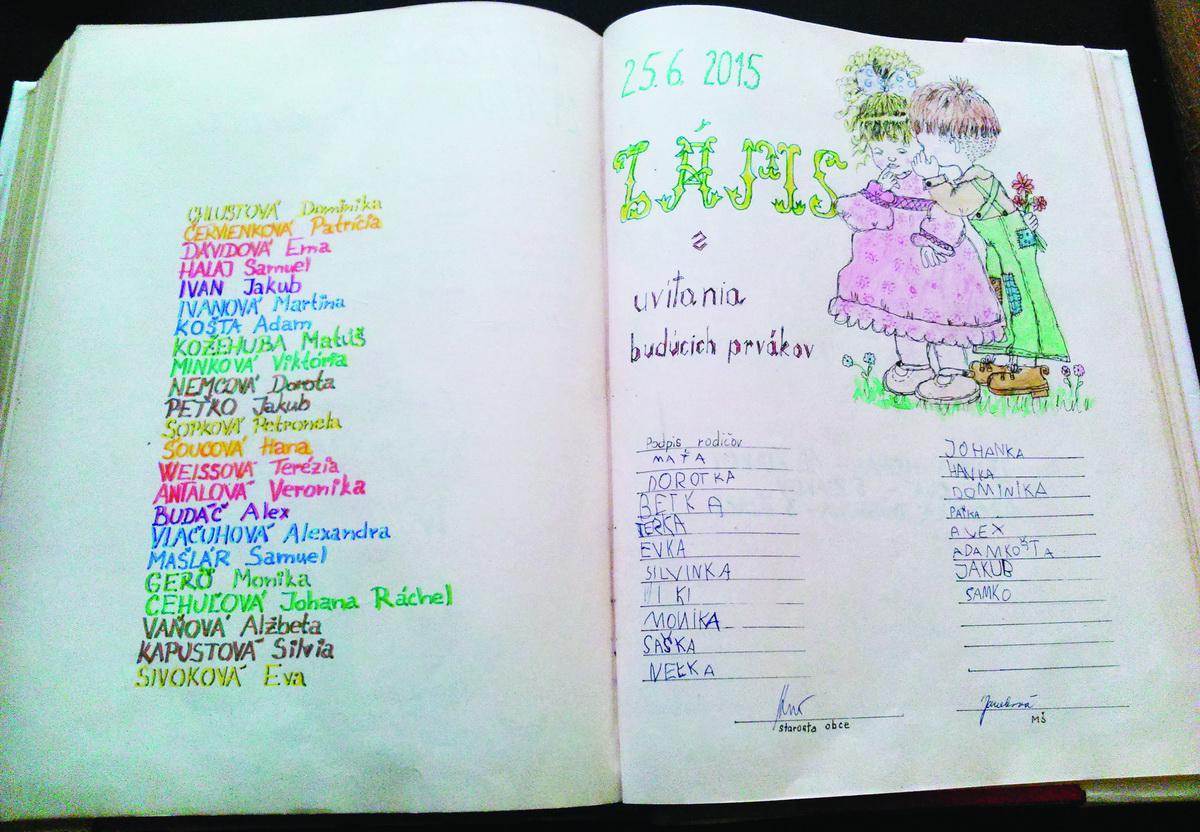 CHLUSTOVÁ Dominika
ČERVIENKOVÁ Patrícia
DÁVIDOVÁ Ema
HALAJ Samuel
IVAN Jakub
IVANOVÁ Martina
KOŠTA Adam
KOŽEHUBA Matúš
MINKOVÁ Viktória
NEMCOVÁ Dorota
PEŤKO Jakub
SOPKOVÁ Petronela
ŠOUCOVÁ Hana
WEISSOVÁ Terézia
ANTALOVÁ Veronika
BUDÁČ Alex
VLAČUHOVÁ Alexandra
MAŠLÁR Samuel
GERÖ Monika
CEHUĽOVÁ Johana Ráchel
VAŇOVÁ Alžbeta
KAPUSTOVÁ Silvia
SIVOKOVÁ Eva
25.6. 2015
ZÁPIS
z
uvítania
budúcich prvákov
Podpis rodičov
MAŤA
DOROTKA
BETKA
TERKA
EVKA
SILVINKA
VIKI
MONIKA
SAŠKA
NELKA
JOHANKA
HANKA
DOMINIKA
PAŤKA
ALEX
ADAMKOŠTA
JAKUB
SAMKO
starosta obce
MŠ